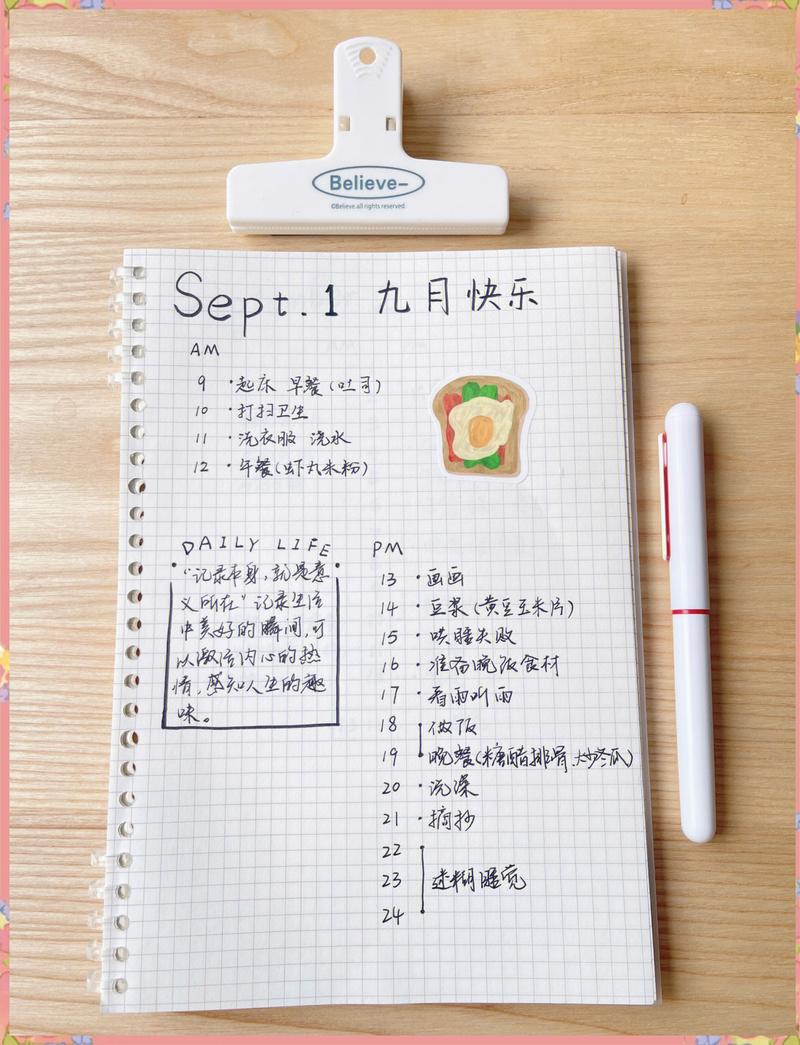 Believe–
©Believe.all rights reserved.
Sept.1 九月快乐
AM
9 ·起床 早餐(吐司)
10 ·打扫卫生
11 ·洗衣服 浇水
12 ·午餐(虾丸米粉)
DAILY LIFE
"记录本身,就是意
义所在"记录生活
中美好的瞬间,可
以激活内心的热
情,感知人生的趣
味。
PM
13 ·画画
14 ·豆浆(黄豆玉米片)
15 ·哄睡失败
16 ·准备晚饭食材
17 ·看雨听雨
18 做饭
19 晚餐(糖醋排骨、炒冬瓜)
20 ·洗澡
21 ·摘抄
22
23 迷糊睡觉
24